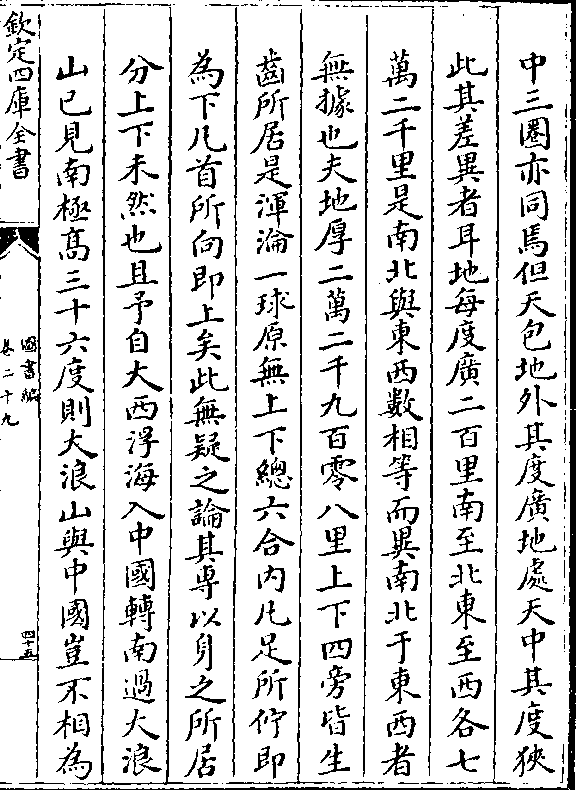 中三圈亦同焉但天包地外其度廣地處天中其度狹
此其差異者耳地每度廣二百里南至北東至西各七
萬二千里是南北與東西數相等而異南北于東西者
無據也夫地厚二萬二千九百零八里上下四旁皆生
齒所居是渾淪一球原無上下總六合内凡足所佇即
為下凡首所向即上矣此無疑之論其專以身之所居
分上下未然也且予自大西浮海入中國轉南過大浪
山已見南極髙三十六度則大浪山與中國豈不相為
欽定四庫全書
圖書編
卷二十九
四十五